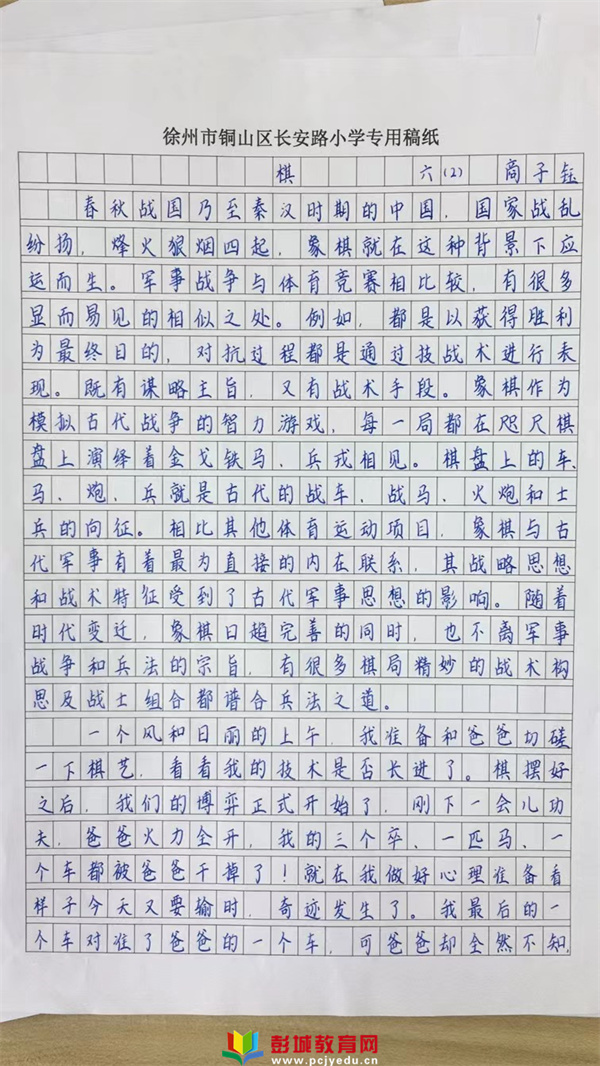 徐州市铜山区长安路小学专用稿纸
棋 六(2) 商子钰
春秋战国乃至秦汉时期的中国，国家战乱
纷扬，烽火狼烟四起，象棋就在这种背景下应
运而生。军事战争与体育竞赛相比较，有很多
显而易见的相似之处。例如，都是以获得胜利
为最终目的，对抗过程都是通过技战术进行表
现。既有谋略主旨，又有战术手段。象棋作为
模拟古代战争的智力游戏，每一局都在咫尺棋
盘上演绎着金戈铁马、兵戎相见。棋盘上的车、
马、炮、兵就是古代的战车、战马、火炮和士
兵的向征。相比其他体育运动项目，象棋与古
代军事有着最为直接的内在联系，其战略思想
和战术特征受到了古代军事思想的影响。随着
时代变迁，象棋日趋完善的同时，也不离军事
战争和兵法的宗旨，有很多棋局精妙的战术构
思及战士组合都谱合兵法之道。
一个风和日丽的上午，我准备和爸爸切磋
一下棋艺，看看我的技术是否长进了。棋摆好
之后，我们的博弈正式开始了，刚下一会儿功
夫，爸爸火力全开，我的三个卒、一匹马、一
个车都被爸爸干掉了！就在我做好心理准备看
样子今天又要输时，奇迹发生了。我最后的一
个车对准了爸爸的一个车，可爸爸却全然不知，
彭城教育网
www.pcjyedu.cn